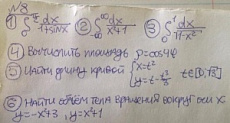 №8
① ∫₀^π dx/(1+sinx) ② ∫₀^∞ dx/(x²+1) ③ ∫₀¹ dx/(1-x²)
④ Вычислить площадь ρ=cos4φ
⑤ Найти длину кривой { x=t² y=t-t³/3 t∈[0,√3]
⑥ Найти объём тела вращения вокруг оси x:
y=-x²+3, y=x²+1